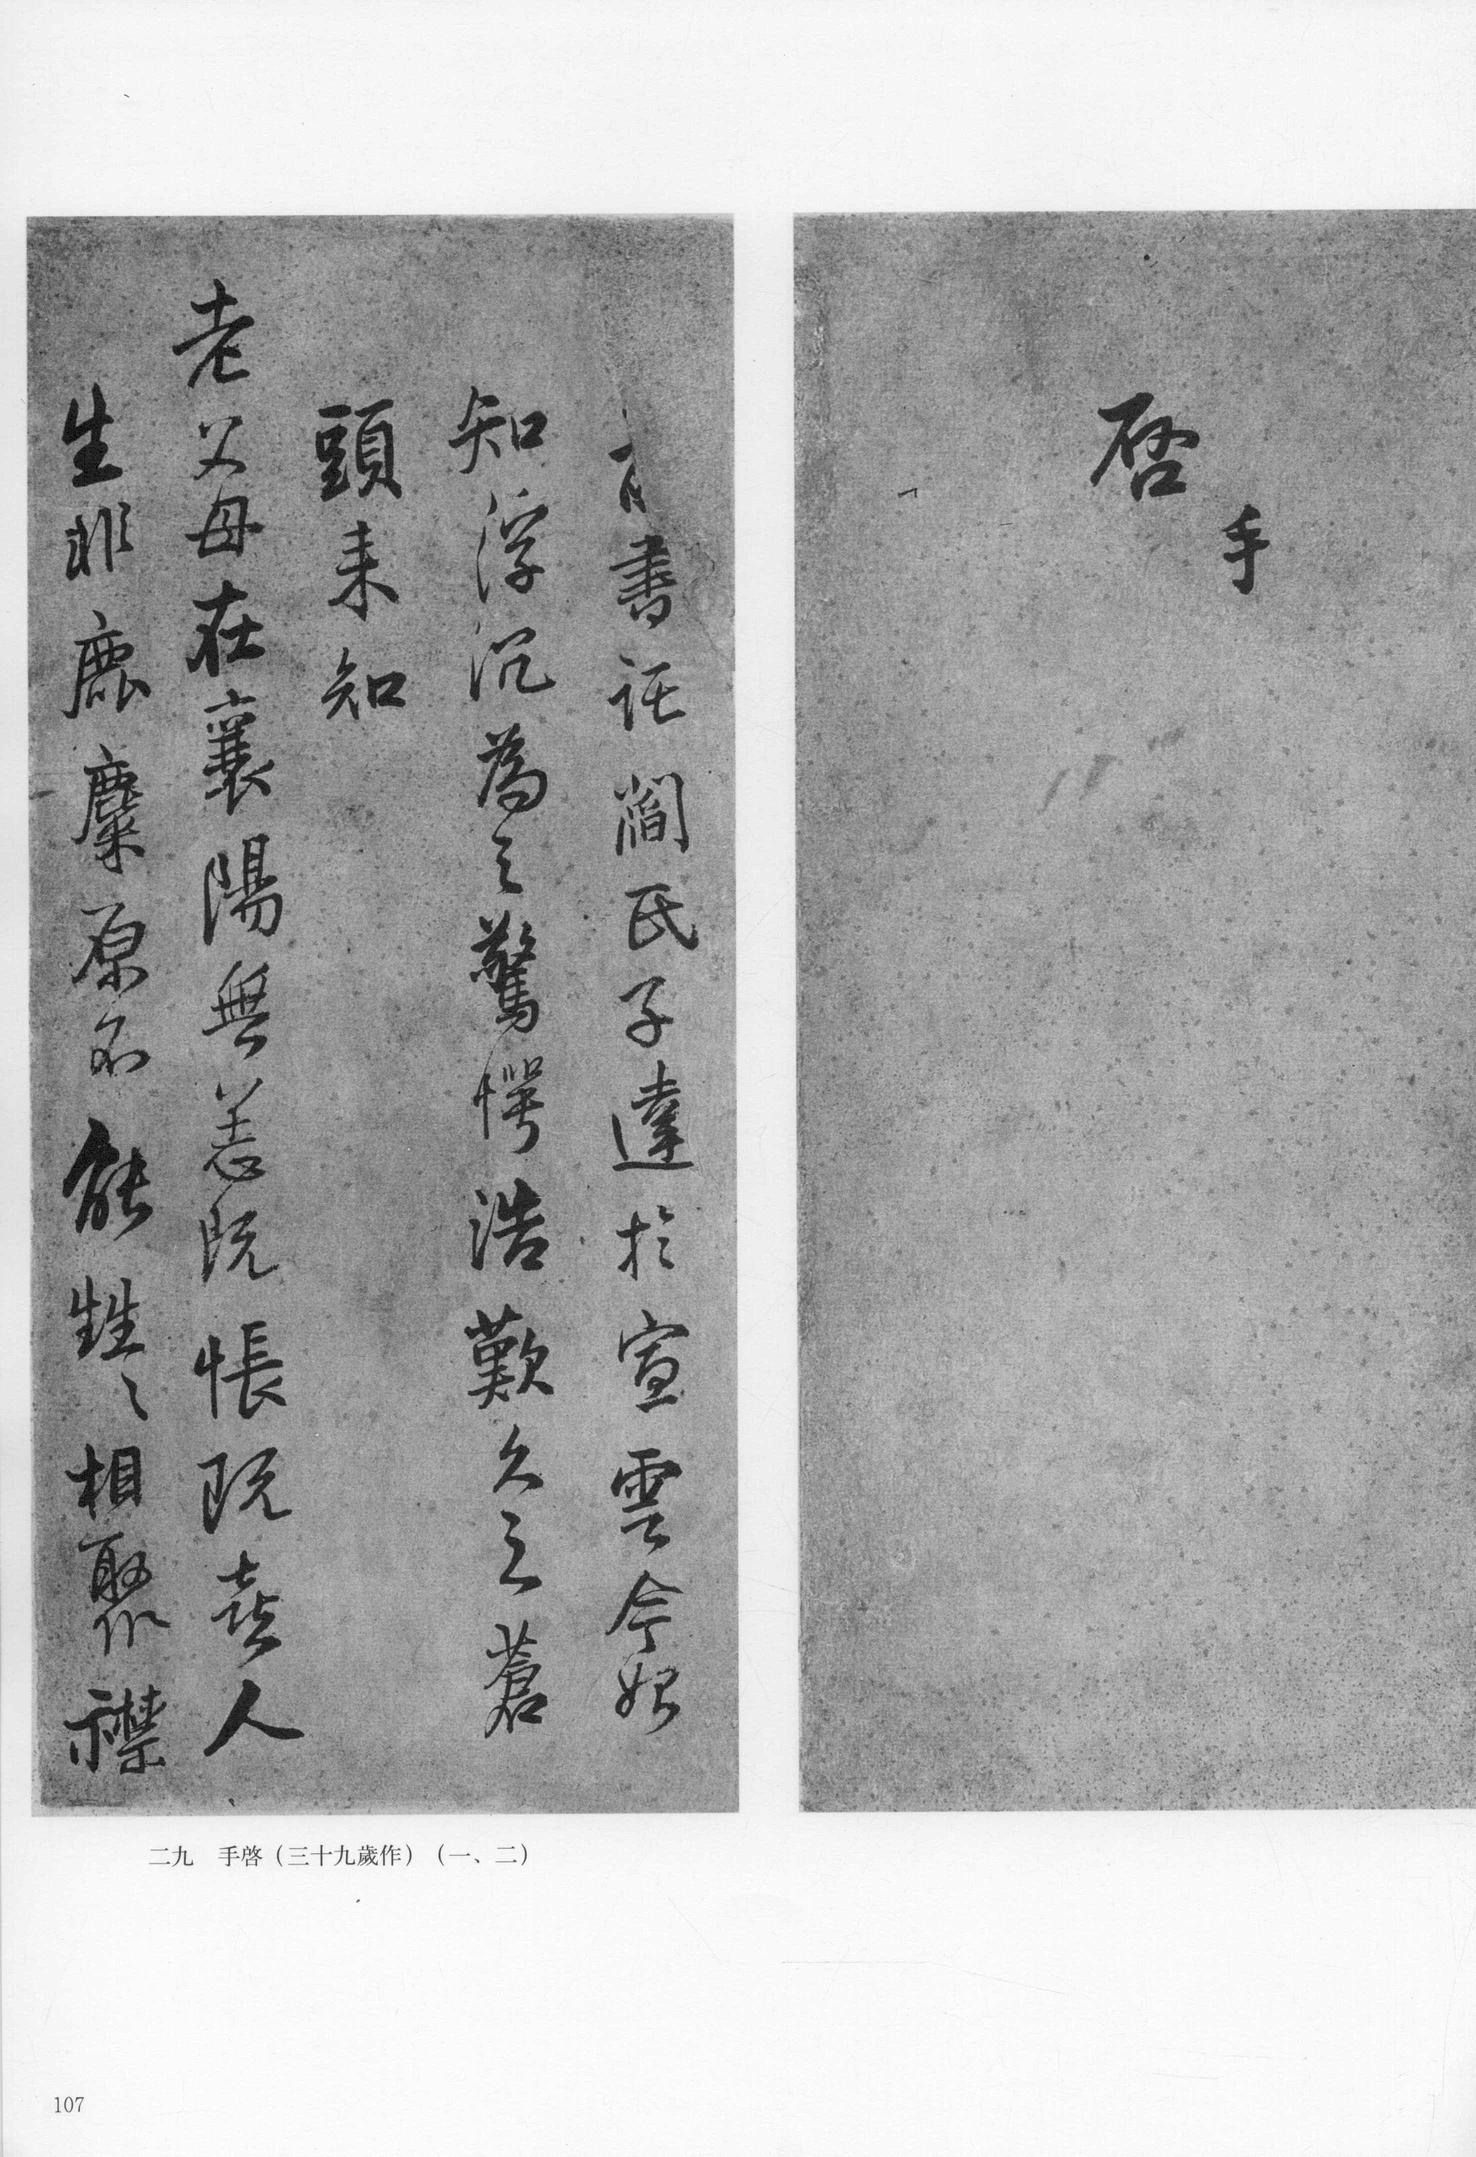 手
啓
書託閻氏子達於宣雲今始
知浮沉爲之驚愕浩歎久之蒼
頭来知
老父母在襄陽無恙既悵既喜人
生非鹿麋原不能甡〻相聚襟
二九　手啓（三十九歲作）（一、二）
107